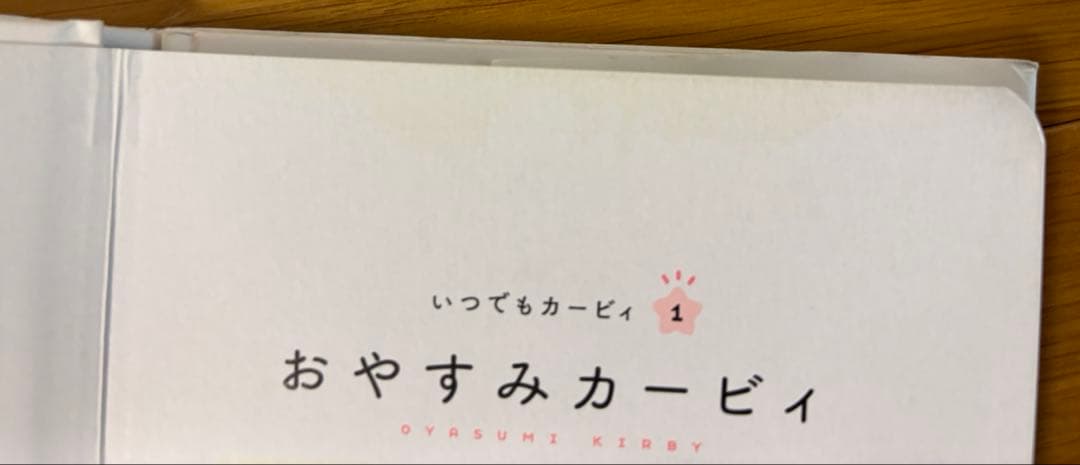 いつでもカービィ 1
おやすみカービィ
OYASUMI KIRBY